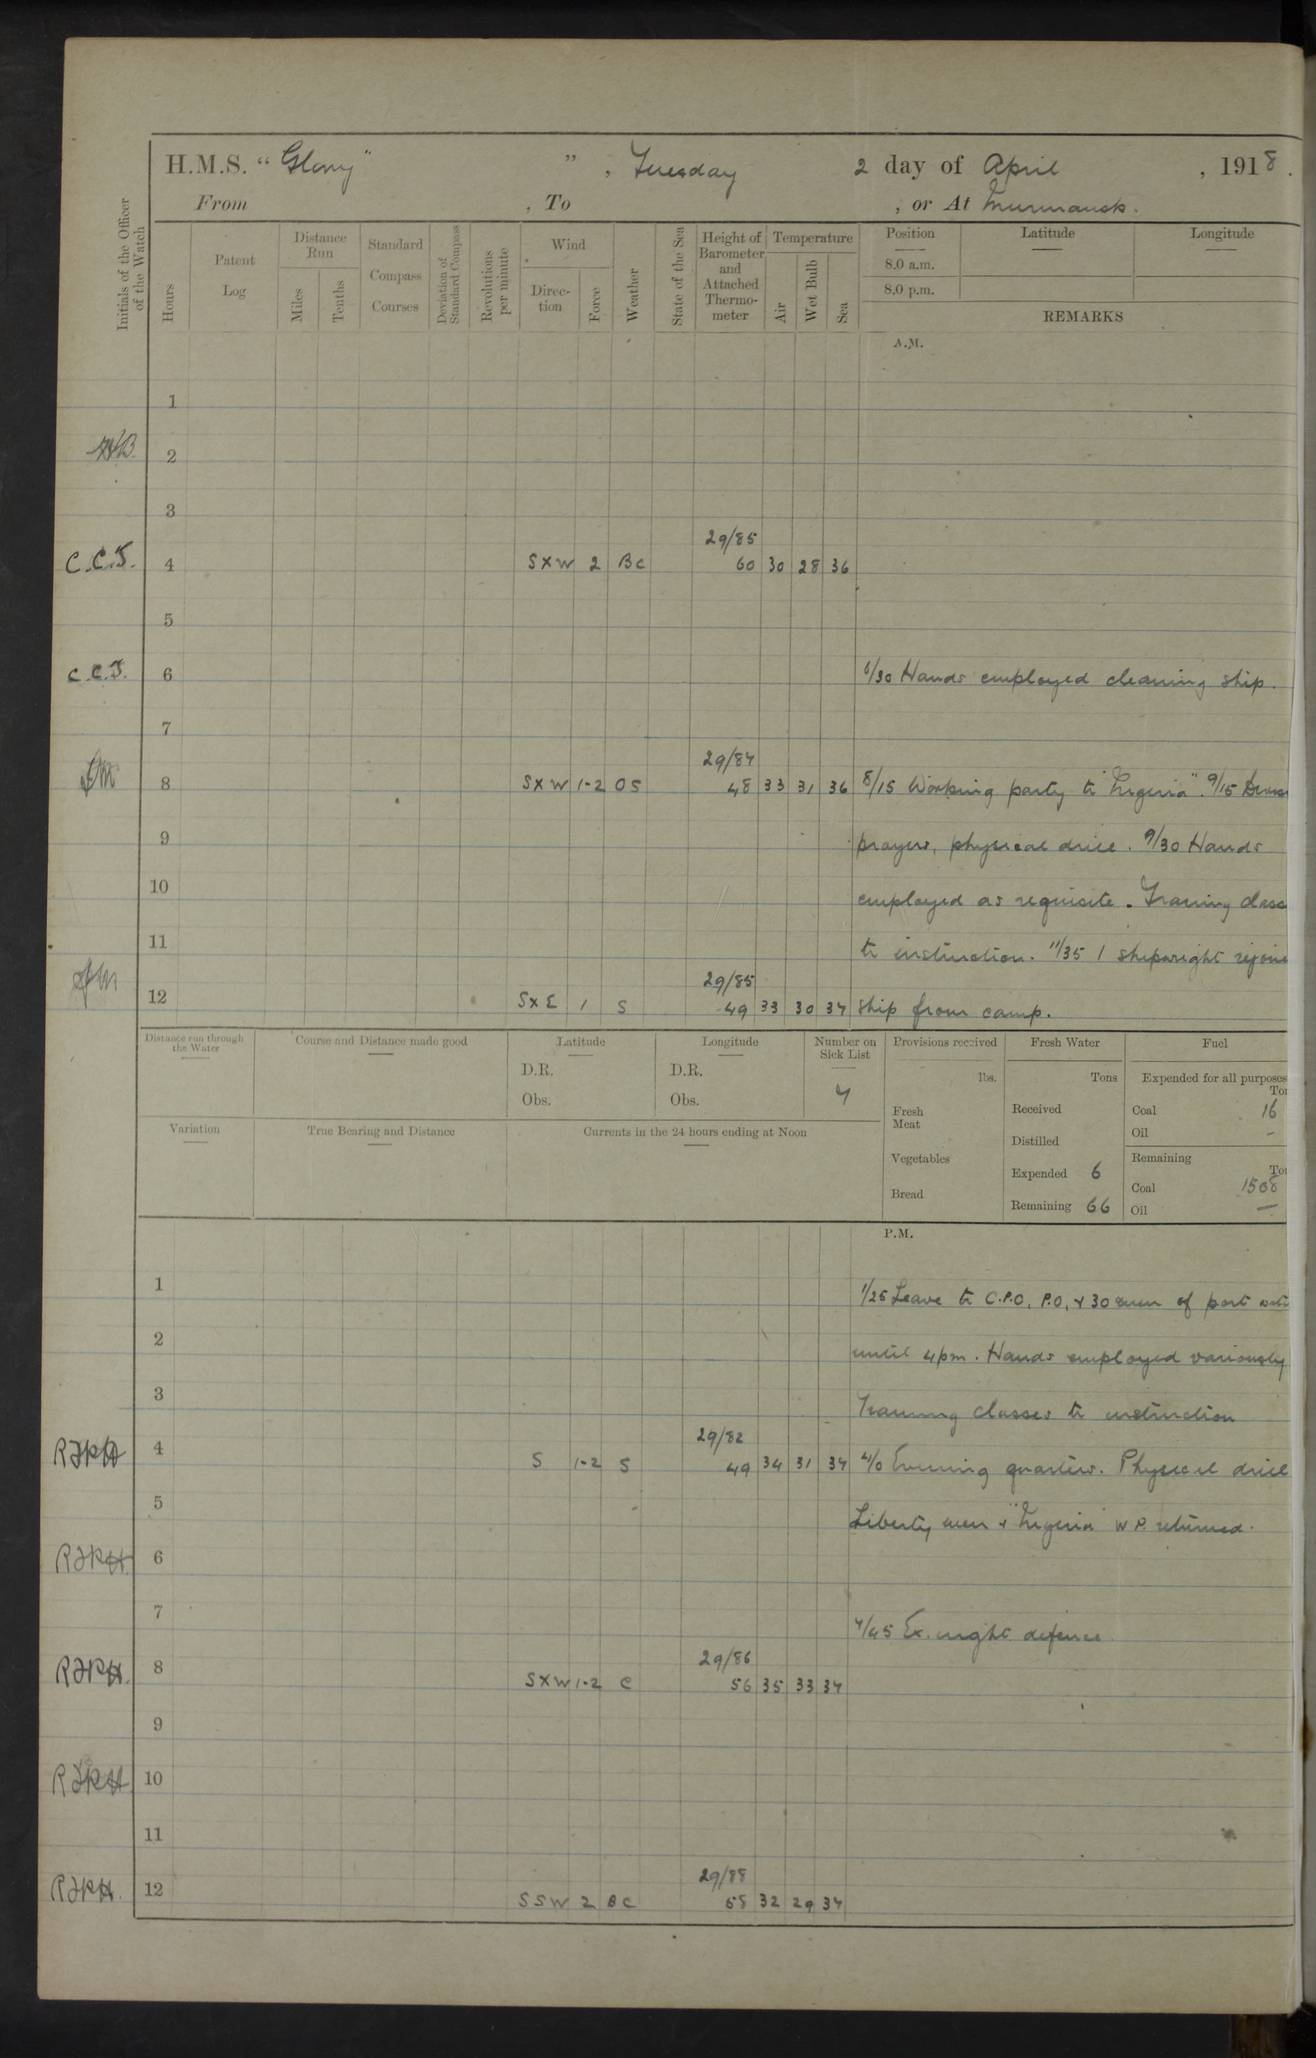 H.M.S. " Glory " " , Tuesday 2 day of April , 1918 .
From , To , or At Murmansk.
Initials of the Officer of the Watch
Hours
Patent Log
Distance Run
Miles
Tenths
Standard Compass Courses
Deviation of Standard Compass
Revolutions per minute
Wind
Direction
Force
Weather
State of the Sea
Height of Barometer and Attached Thermometer
Temperature
Air
Wet Bulb
Sea
Position
8.0 a.m.
8.0 p.m.
Latitude
Longitude
REMARKS
A.M.
1
2
3
29/85
C.C.J. 4 S X W 2 BC 60 30 28 36
5
C.C.J. 6 6/30 Hands employed cleaning ship.
7
29/84
8 S X W 1-2 OS 48 33 31 36 8/15 Working party to "Nigeria". 9/15
9 prayers, physical drill. 9/30 Hands
10 employed as requisite. Training class
11 to instruction. 11/35 1 shipwright
29/85
12 S X E 1 S 49 33 30 34 ship from camp.
Distance run through the Water
Course and Distance made good
Latitude
D.R.
Obs.
Longitude
D.R.
Obs.
Number on Sick List
4
Provisions received
lbs.
Fresh Meat
Vegetables
Bread
Fresh Water
Tons
Received
Distilled
Expended 6
Remaining 66
Fuel
Expended for all purposes
Coal 16
Oil -
Remaining
Coal 1508
Oil —
Variation
True Bearing and Distance
Currents in the 24 hours ending at Noon
P.M.
1 1/25 Leave to C.P.O, P.O, & 30 men of port
2 until 4pm. Hands employed variously
3 Training classes to instruction
29/82
4 S 1-2 S 49 34 31 34 4/0 Evening quarters. Physical drill
5 Liberty men & "Nigeria" W P returned.
6
7 7/45 Ex. night defence
29/86
8 S X W 1-2 C 56 35 33 34
9
10
11
29/88
12 S S W 2 B C 58 32 29 34